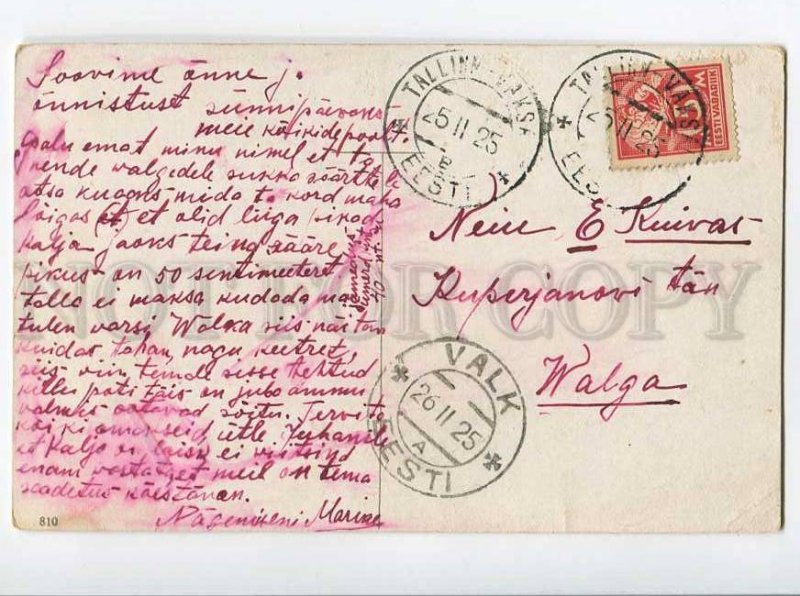 Soovime õnne j.
õnnistust sünnipäevaks
meie kõikide poolt.
palu emat minu nimel et ta
nende walgedele sukka säärtele
otsa kuoaks mida ta kord maha
lõigas et olid liiga pikad
Kalja jaoks teing sääre
pikus on 50 sentimeeteret
talla ei maksa kududa ma
tulen varsi Walka siis näitan
kuidas tahan, nagu keetret,
siis viin temale sisse tehtud
killu poti täis on juba ammu
valmis ootavad sõitu. Tervita
kõiki omakseid, ütle Juhanile
et Kaljo on laisk ei viitsind
enam vastatget meil on tema
saadetus käes tänan.
Nägemiseni Marine
810
TALLINN-VAKSAL
25 II 25
B
EESTI
TALLINN-VAKSAL
25 II 25
EESTI
EESTI VABARIIK
Neiu E Kuivas
Kuperjanovi tän
Walga
VALK
26 II 25
A
EESTI
NOT FOR COPY